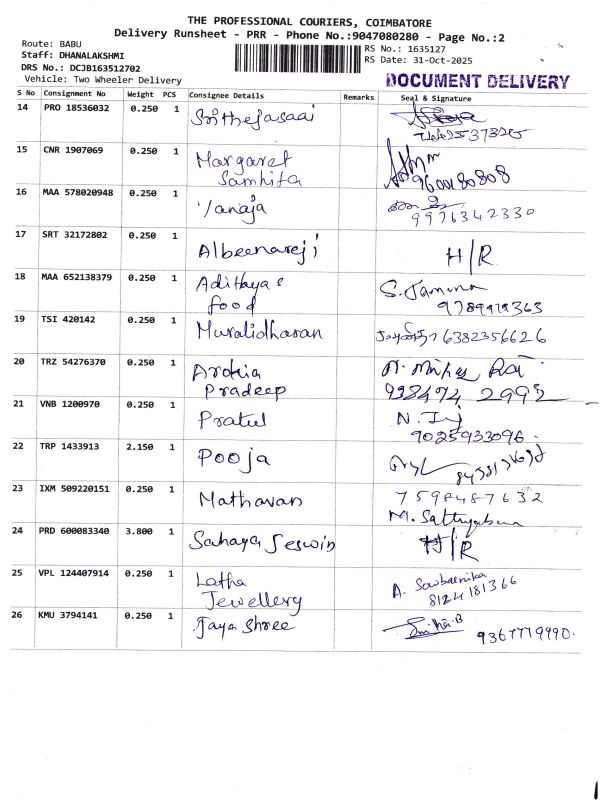 THE PROFESSIONAL COURIERS, COIMBATORE
Delivery Runsheet - PRR - Phone No.:9047080280 - Page No.:2
Route: BABU
Staff: DHANALAKSHMI
DRS No.: DCJB163512702
Vehicle: Two Wheeler Delivery
RS No.: 1635127
RS Date: 31-Oct-2025
DOCUMENT DELIVERY
S No Consignment No Weight PCS Consignee Details Remarks Seal & Signature
14 PRO 18536032 0.250 1 Srithejasaai
15 CNR 1907069 0.250 1 Margaret
Samhita 9600180808
16 MAA 578020948 0.250 1 Vanaja
9976342330
17 SRT 32172802 0.250 1 Albeenareji H/R
18 MAA 652138379 0.250 1 Adithyas S. Jamuna
food 9789919363
19 TSI 420142 0.250 1 Muralidharan 6382356626
20 TRZ 54276370 0.250 1
Pradeep
21 VNB 1200970 0.250 1 Pratul
9025933096.
22 TRP 1433913 2.150 1 Pooja
23 IXM 509220151 0.250 1 Mathavan 7598487632
24 PRD 600083340 3.800 1 Sahaya Jeswin H/R
25 VPL 124407914 0.250 1 Latha A. Sowbarnika
Jewellery 8124181366
26 KMU 3794141 0.250 1 Jaya Shree 9367779990.